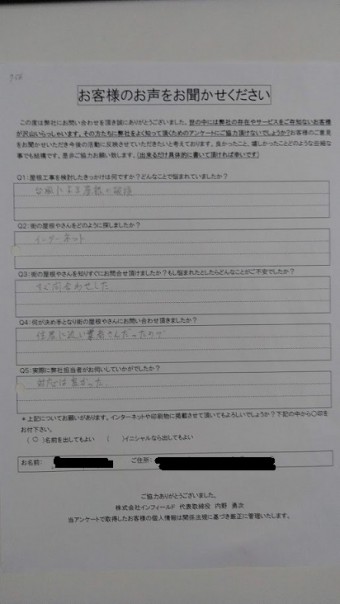 お客様のお声をお聞かせください
この度は弊社にお問い合わせを頂き誠にありがとうございました。世の中には弊社の存在やサービスをご存知ないお客様
が沢山いらっしゃいます。その方たちに弊社をよく知って頂くためのアンケートにご協力頂けないでしょうか?お客様のご意見
をお聞かせいただき今後の活動に反映させていただきたいと考えております。良かったこと、嬉しかったことどのような些細な
事でも結構です。是非ご協力お願い致します。(出来るだけ具体的に書いて頂ければ幸いです)
Q1:屋根工事を検討したきっかけは何ですか?どんなことで悩まれていましたか?
台風による屋根の破損
Q2:街の屋根やさんをどのように探しましたか?
インターネット
Q3:街の屋根やさんを知りすぐにお問合せ頂けましたか?もし悩まれたとしたらどんなことがご不安でしたか?
すぐ問合わせした
Q4:何が決め手となり街の屋根やさんにお問い合わせ頂きましたか?
住居に近い業者さんだったので
Q5:実際に弊社担当者がお伺いしていかがでしたか?
対応は良かった
*上記についてお願いがあります。インターネットや印刷物に掲載させて頂いてもよろしいでしょうか?下記の中から〇印を
お付下さい。
(〇)名前を出してもよい ( )イニシャルなら出してもよい
お名前: ご住所:
ご協力ありがとうございました。
株式会社インフィールド 代表取締役 内野 勇次
当アンケートで取得したお客様の個人情報は関係法規に基づき厳正に管理いたします。